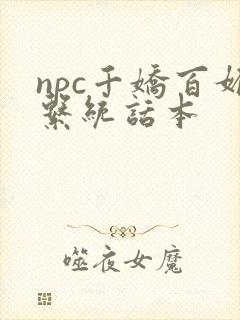 npc千嬌百媚
繫統話本
噬夜女魔